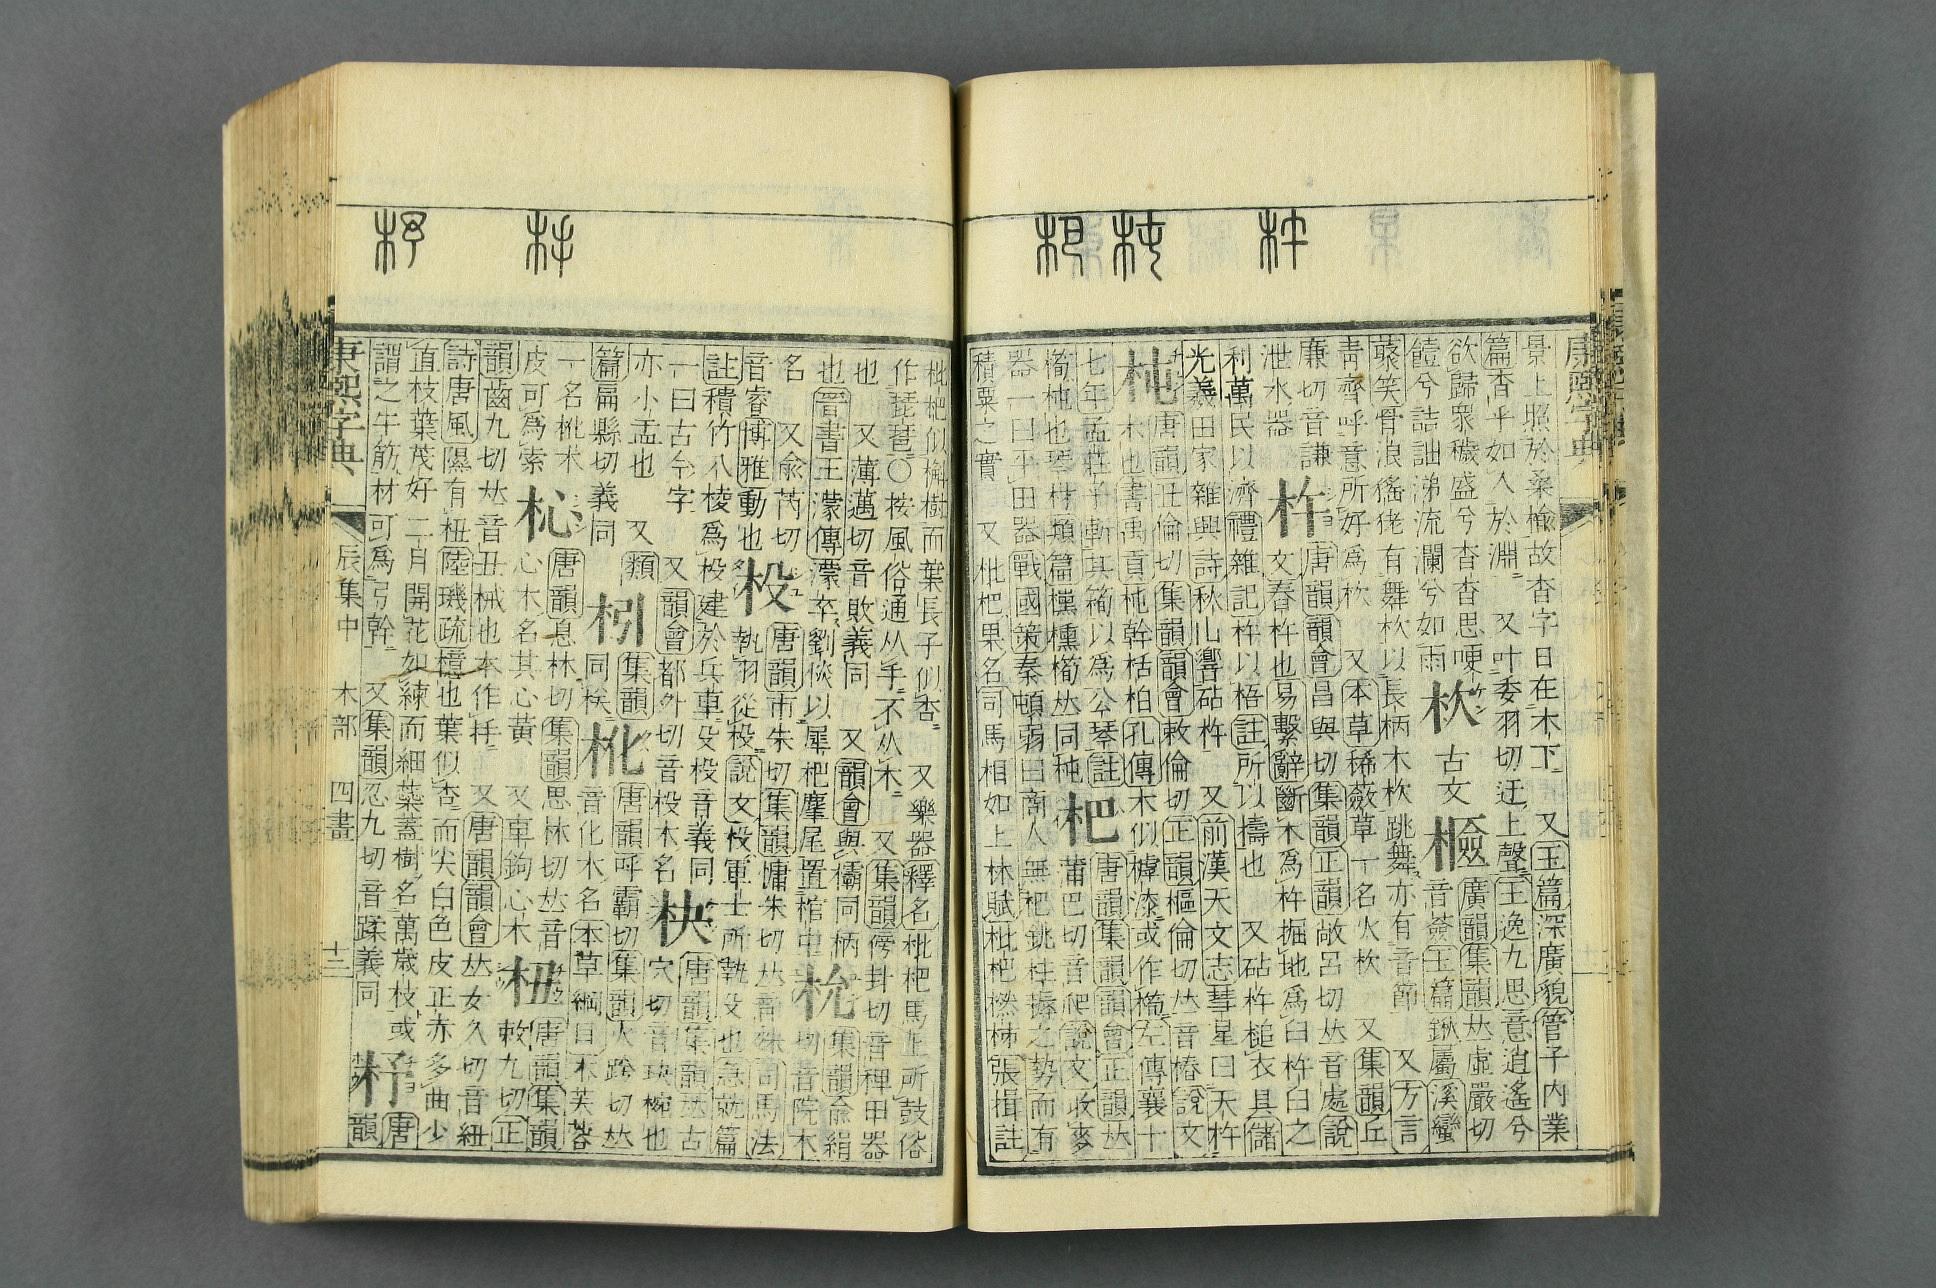 康熙字典
景上照於桑榆故杳字日在木下 又玉篇深廣貌管子內業
篇杳乎如入於淵 又叶委羽切迂上聲王逸九思音逍遙兮
欲歸眾穢盛兮杳杳思哽
饐兮詰詘涕流瀾兮如雨
杴 古文
廣韻集韻𠀤虛嚴切
音薟玉篇鍬屬溪蠻
叢笑骨浪猺狫有舞杴以長柄木杴跳舞亦有音節 又方言
青齊呼意所好為杴 又本草豨薟草一名火杴 又集韻丘
廉切音謙
泄水器
杵
唐韻韻會昌與切集韻正韻敞呂切𠀤音處說
文舂杵也易繫辭斷木為杵掘地為臼杵臼之
利萬民以濟禮雜記杵以梧註所以擣也 又砧杵槌衣具儲
光羲田家雜興詩秋山響砧杵 又前漢天文志彗星曰天杵
杶
唐韻丑倫切集韻韻會敕倫切正韻樞倫切𠀤音椿說文
木也書禹貢杶幹栝柏孔傳木似樗漆或作櫄左傳襄十
七年孟莊子斬其橁以為公琴註
橁杶也琴材類篇櫄橁𠀤同杶
杷
唐韻集韻韻會正韻𠀤
蒲巴切音爬說文收麥
器一曰平田器戰國策秦頓弱曰商人無把銚推耨之勢而有
積粟之實 又枇杷果名司馬相如上林賦枇杷橪柿張揖註
枇杷似槲樹而葉長子似杏 又樂器釋名枇杷馬上所鼓俗
作琵琶○按風俗通从手不从木 又集韻傍卦切音稗田器
也 又薄邁切音敗義同 又韻會與欛同柄
也晉書王濛傳濛卒劉惔以犀杷麈尾置棺中
集韻俞絹
切音院木
名 又俞芮切
音睿博雅動也
杸
唐韻市朱切集韻慵朱切𠀤音殊司馬法
執羽從杸說文杸軍士所執殳也急就篇
註積竹八稜為杸建於兵車殳杸音義同
一曰古今字 又韻會都外切音祋木名
唐韻集韻𠀤古
穴切音玦椀也
亦小盂也 又類
篇扃縣切義同
集韻
同杙
杹
唐韻呼霸切集韻火跨切𠀤
音化木名本草綱目木芙蓉
一名杹木
皮可為索
杺
唐韻息林切集韻思林切𠀤音
心木名其心黃 又車鉤心木
杻
唐韻集韻
敕九切正
韻齒九切𠀤音丑械也本作杽 又唐韻韻會𠀤女久切音紐
詩唐風隰有杻陸璣疏檍也葉似杏而尖白色皮正赤多曲少
直枝葉茂好二月開花如練而細蘂蓋樹名萬歲枝或
謂之牛筋材可為弓幹 又集韻忍九切音蹂義同
杼
唐
韻
康熙字典 辰集中 木部 四畫 十三